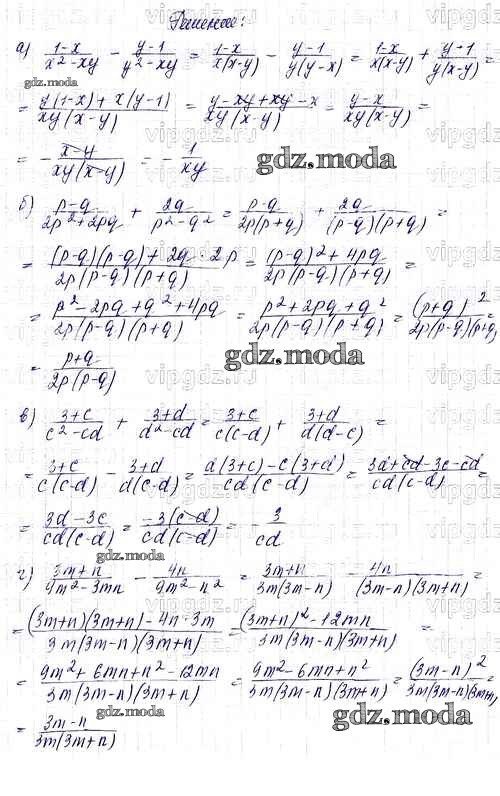 Решение:
а) (1-x)/(x²-xy) - (y-1)/(y²-xy) = (1-x)/(x(x-y)) - (y-1)/(y(y-x)) = (1-x)/(x(x-y)) + (y-1)/(y(x-y)) =
gdz.moda
= (y(1-x)+x(y-1))/(xy(x-y)) = (y-xy+xy-x)/(xy(x-y)) = (y-x)/(xy(x-y)) =
= - (x-y)/(xy(x-y)) = - 1/(xy)
gdz.moda
б) (p-q)/(2p²+2pq) + 2q/(p²-q²) = (p-q)/(2p(p+q)) + 2q/((p-q)(p+q)) =
= ((p-q)(p-q)+2q·2p)/(2p(p-q)(p+q)) = ((p-q)²+4pq)/(2p(p-q)(p+q)) =
= (p²-2pq+q²+4pq)/(2p(p-q)(p+q)) = (p²+2pq+q²)/(2p(p-q)(p+q)) = (p+q)²/(2p(p-q)(p+q)) =
= (p+q)/(2p(p-q))
gdz.moda
в) (3+c)/(c²-cd) + (3+d)/(d²-cd) = (3+c)/(c(c-d)) + (3+d)/(d(d-c)) =
= (3+c)/(c(c-d)) - (3+d)/(d(c-d)) = (d(3+c)-c(3+d))/(cd(c-d)) = (3d+cd-3c-cd)/(cd(c-d)) =
= (3d-3c)/(cd(c-d)) = -3(c-d)/(cd(c-d)) = - 3/(cd)
gdz.moda
г) (3m+n)/(9m²-3mn) - 4n/(9m²-n²) = (3m+n)/(3m(3m-n)) - 4n/((3m-n)(3m+n)) =
= ((3m+n)(3m+n)-4n·3m)/(3m(3m-n)(3m+n)) = ((3m+n)²-12mn)/(3m(3m-n)(3m+n)) =
= (9m²+6mn+n²-12mn)/(3m(3m-n)(3m+n)) = (9m²-6mn+n²)/(3m(3m-n)(3m+n)) = (3m-n)²/(3m(3m-n)(3m+n)) =
= (3m-n)/(3m(3m+n))
gdz.moda